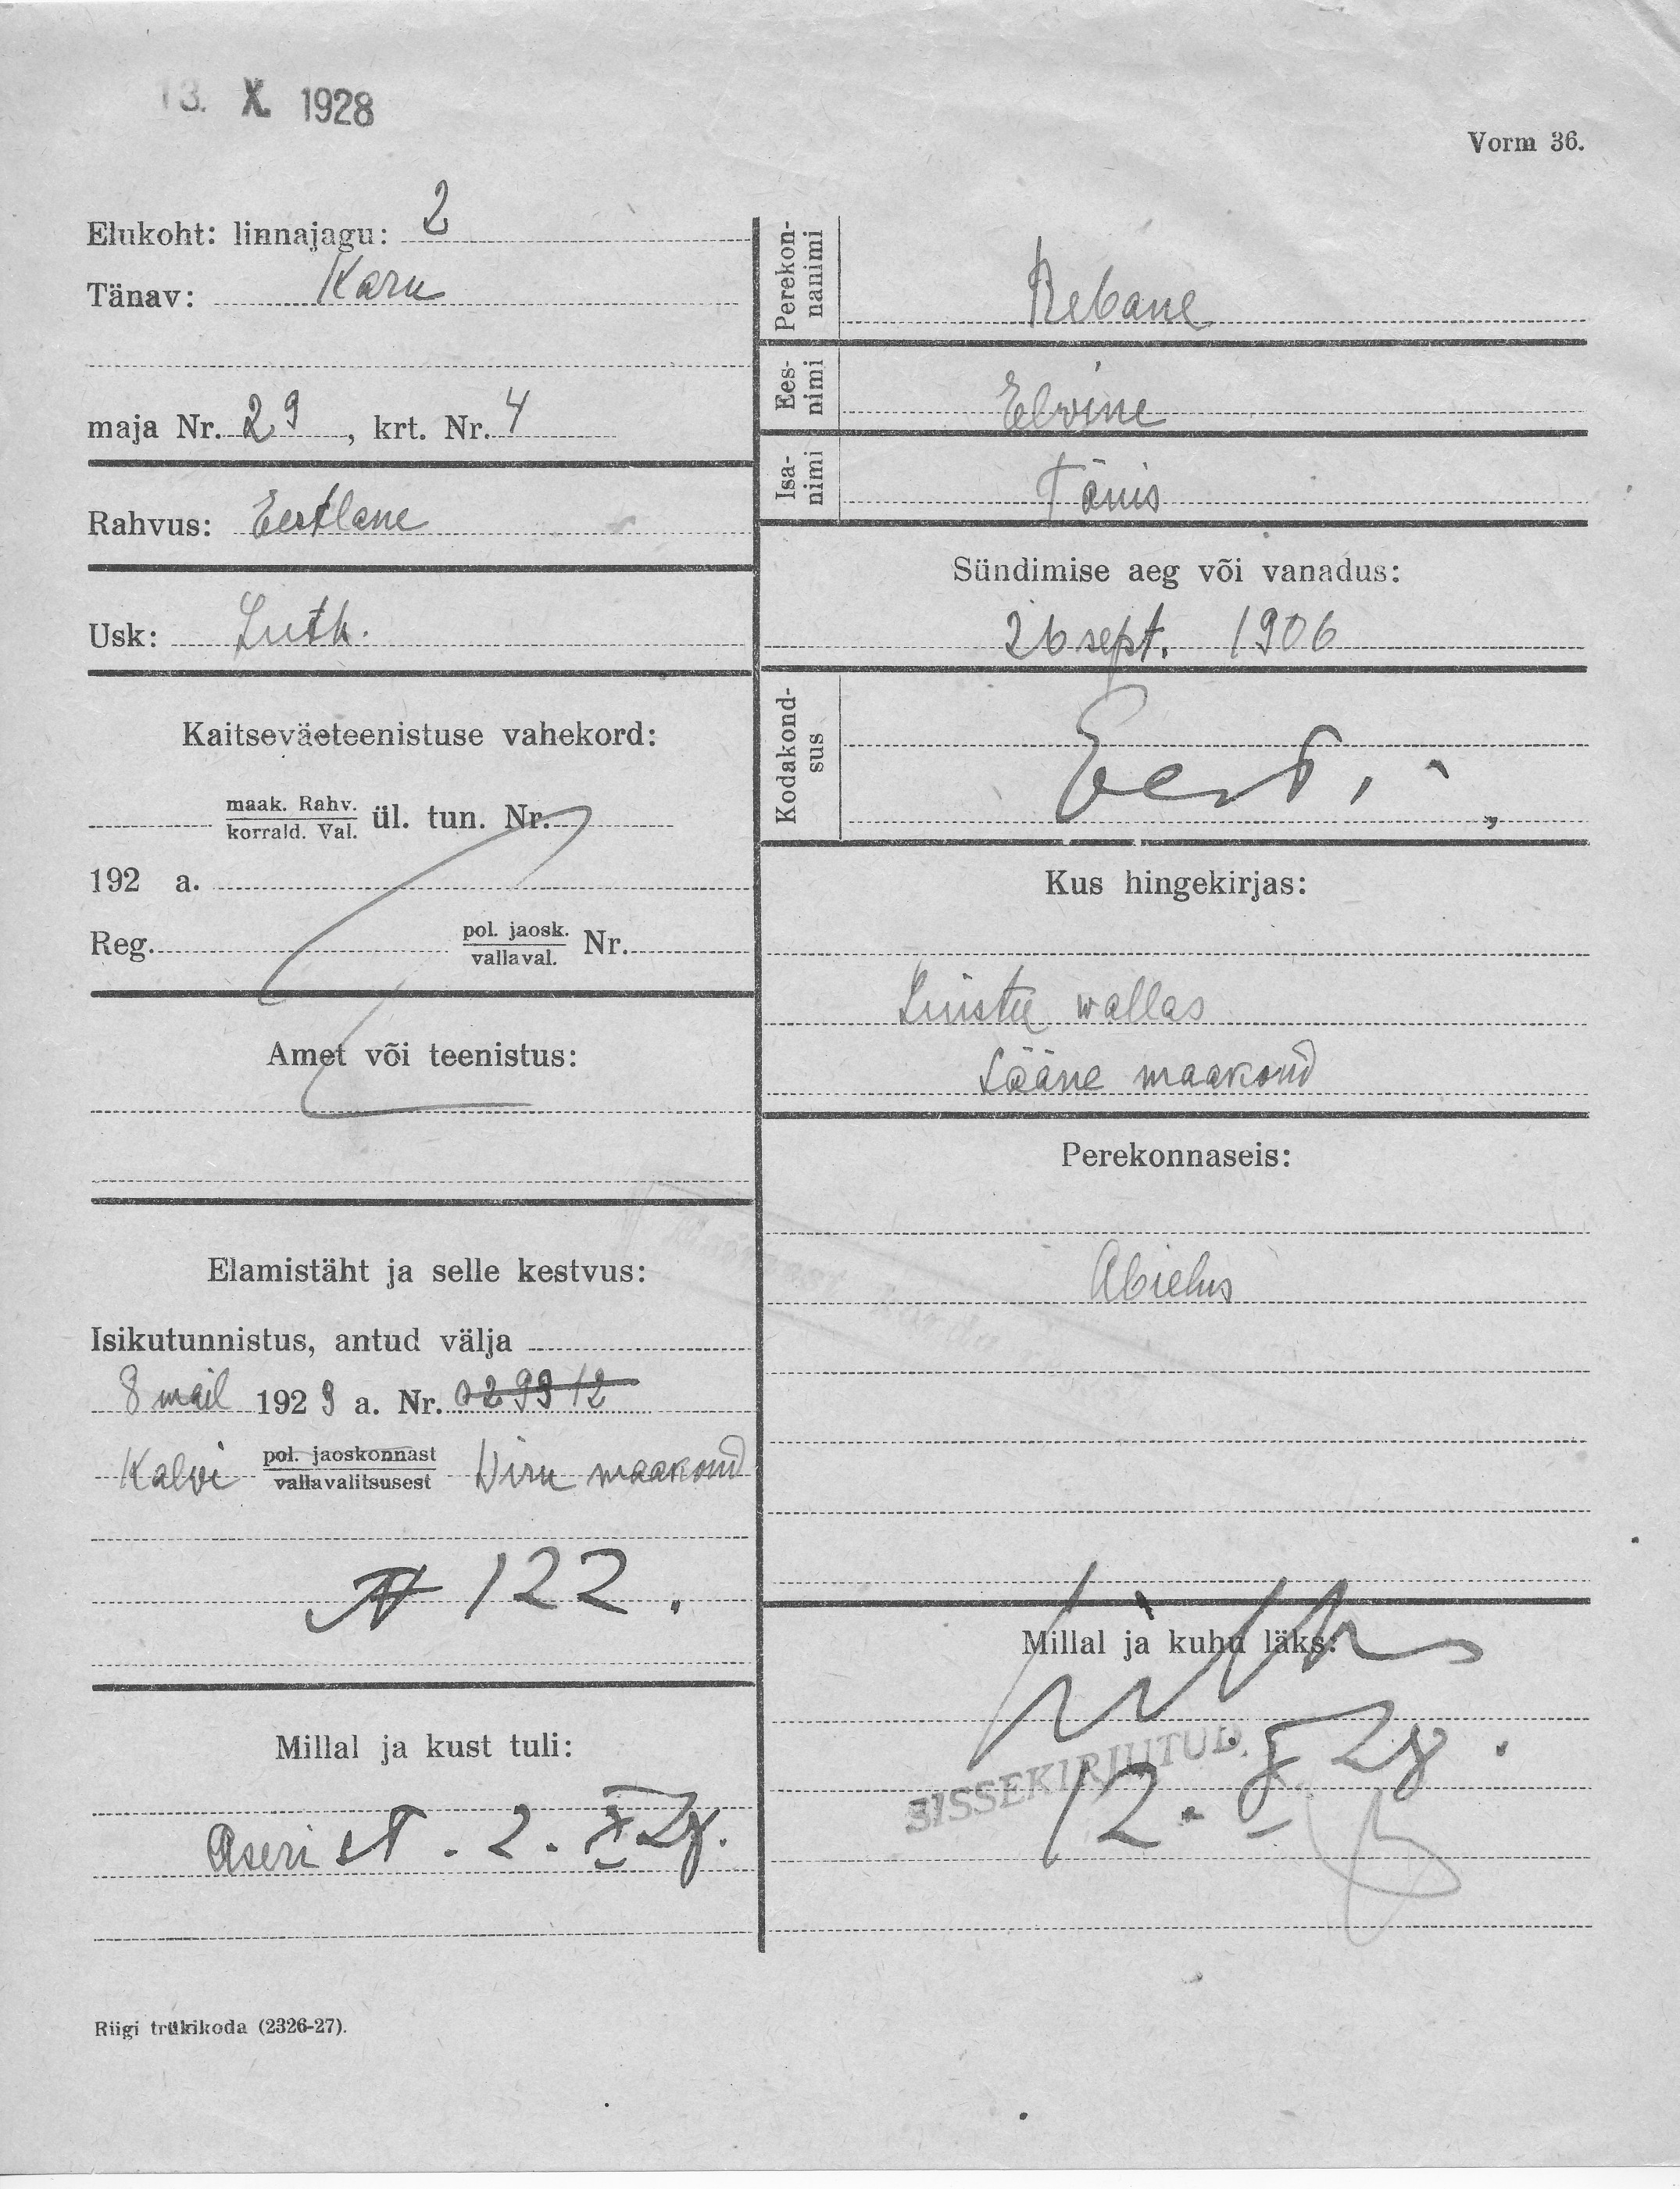 13. X. 1928
Vorm 36.
Elukoht: linnajagu: 2
Tänav: Karu
maja Nr. 29, krt. Nr. 4
Rahvus: Eestlane
Usk: Luth.
Kaitseväeteenistuse vahekord:
maak. Rahv.
korrald. Val. ül. tun. Nr.
192 a.
Reg. pol. jaosk.
vallaval. Nr.
Amet või teenistus:
Elamistäht ja selle kestvus:
Isikutunnistus, antud välja
8 mail 1923 a. Nr. 029912
Kalvi pol. jaoskonnast
vallavalitsusest Wiru maakond
N 122.
Millal ja kust tuli:
Aserist. 2. X 28.
Riigi trükikoda (2326-27).
Perekon-
nanimi Rebane
Ees-
nimi Elvine
Isa-
nimi Tõnis
Sündimise aeg või vanadus:
26 sept. 1906
Kodakond-
sus Eesti
Kus hingekirjas:
wallas
Lääne maakond
Perekonnaseis:
Abielus
Millal ja kuhu läks:
SISSEKIRJUTUD.
12. X 28.